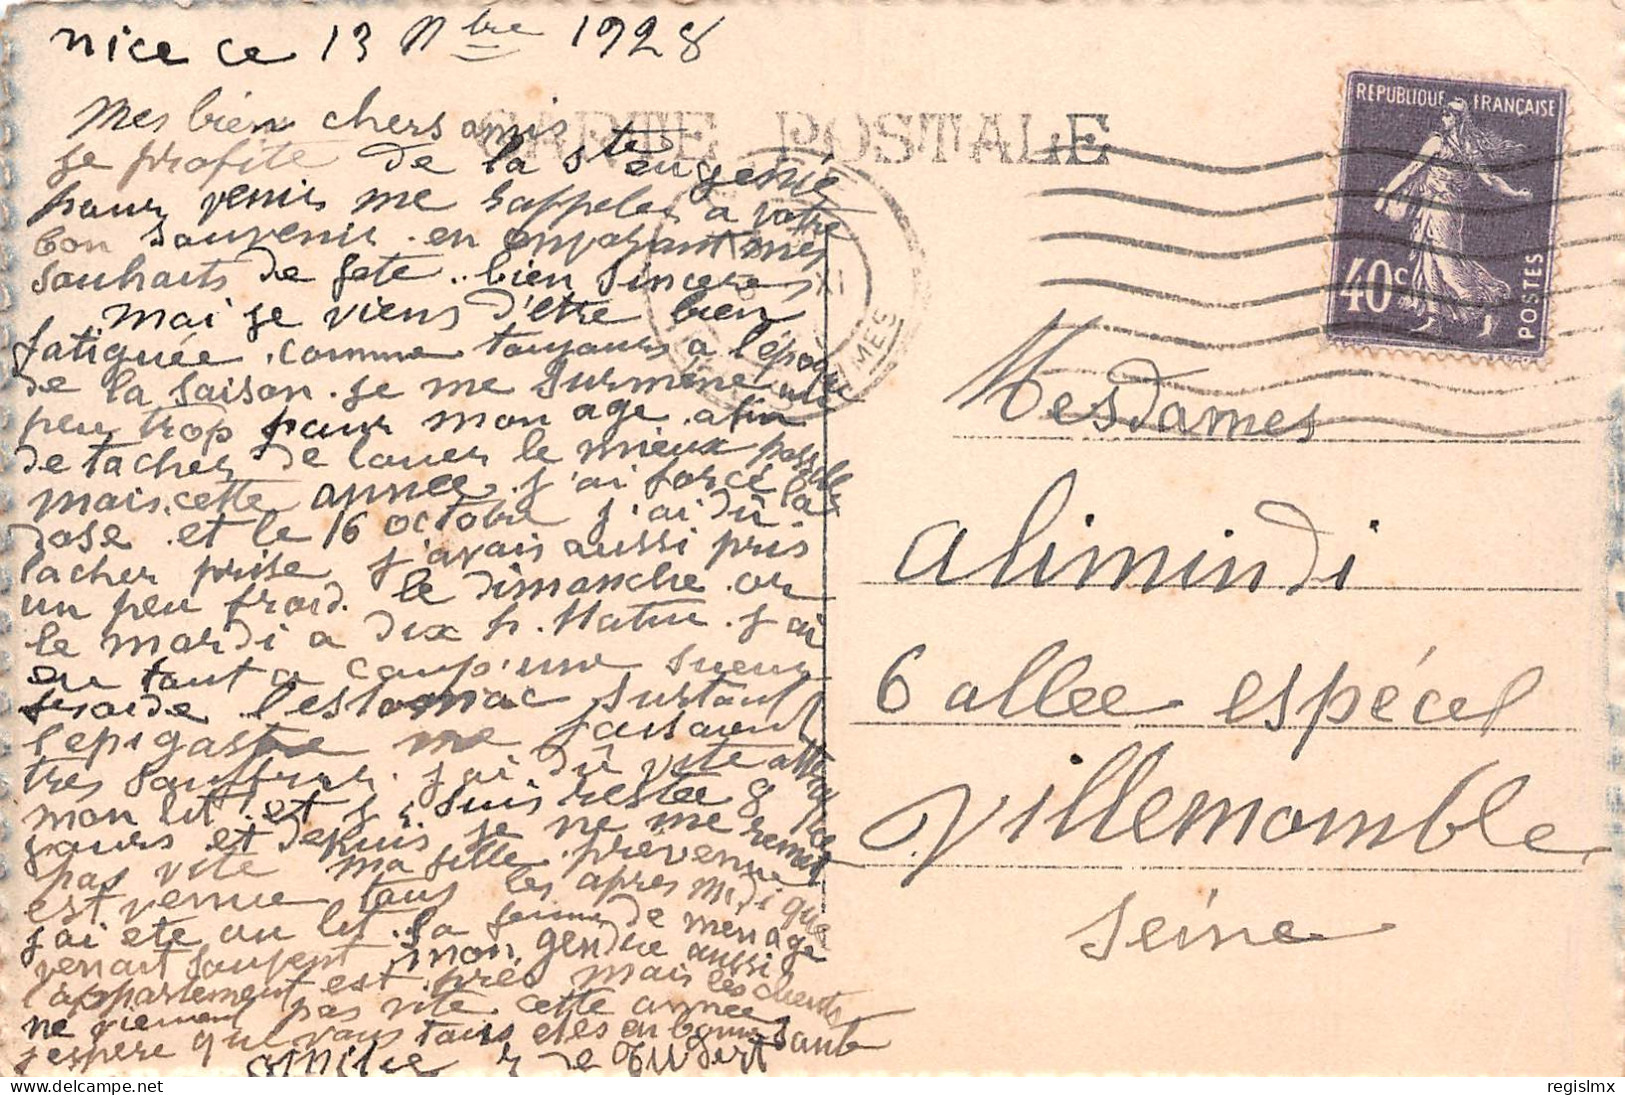 nice ce 13 Nbre 1928
CARTE POSTALE
REPUBLIQUE FRANÇAISE
40c
POSTES
Mes bien chers amis
je profite de la Ste eugénie
pour venir me rappeler a votre
bon souvenir. en envoyant mes
souhaits de fete.. bien sinceres
Moi je viens d'etre bien
fatiguée. comme toujours a l'époque
de la saison. je me surmene un
peu trop pour mon age. afin
de tacher de louer le mieux possible
mais. cette année. j'ai forcé la
dose. et le 16 octobre j'ai dû.
lacher prise j'avais aussi pris
un peu froid. le dimanche. or
le mardi a dix h. j'ai
eu tout a coup. une sueur
froide l'estomac surtout
l'epigastre me faisaient
tres souffrir. j'ai. dû vite
mon lit! et je suis restée 8
jours et depuis. je ne me remet
pas vite ma fille. prevenue
est venue tous les apres midi que
j'ai ete au lit. la femme de menage
venait souvent mon gendre aussi
l'appartement est. près mais les clients
ne viennent pas vite cette année
j'espere que vous tous etes en bonne santé
MES
Mesdames
alimindi
6 allee espécel
Villemomble
Seine
regislmx